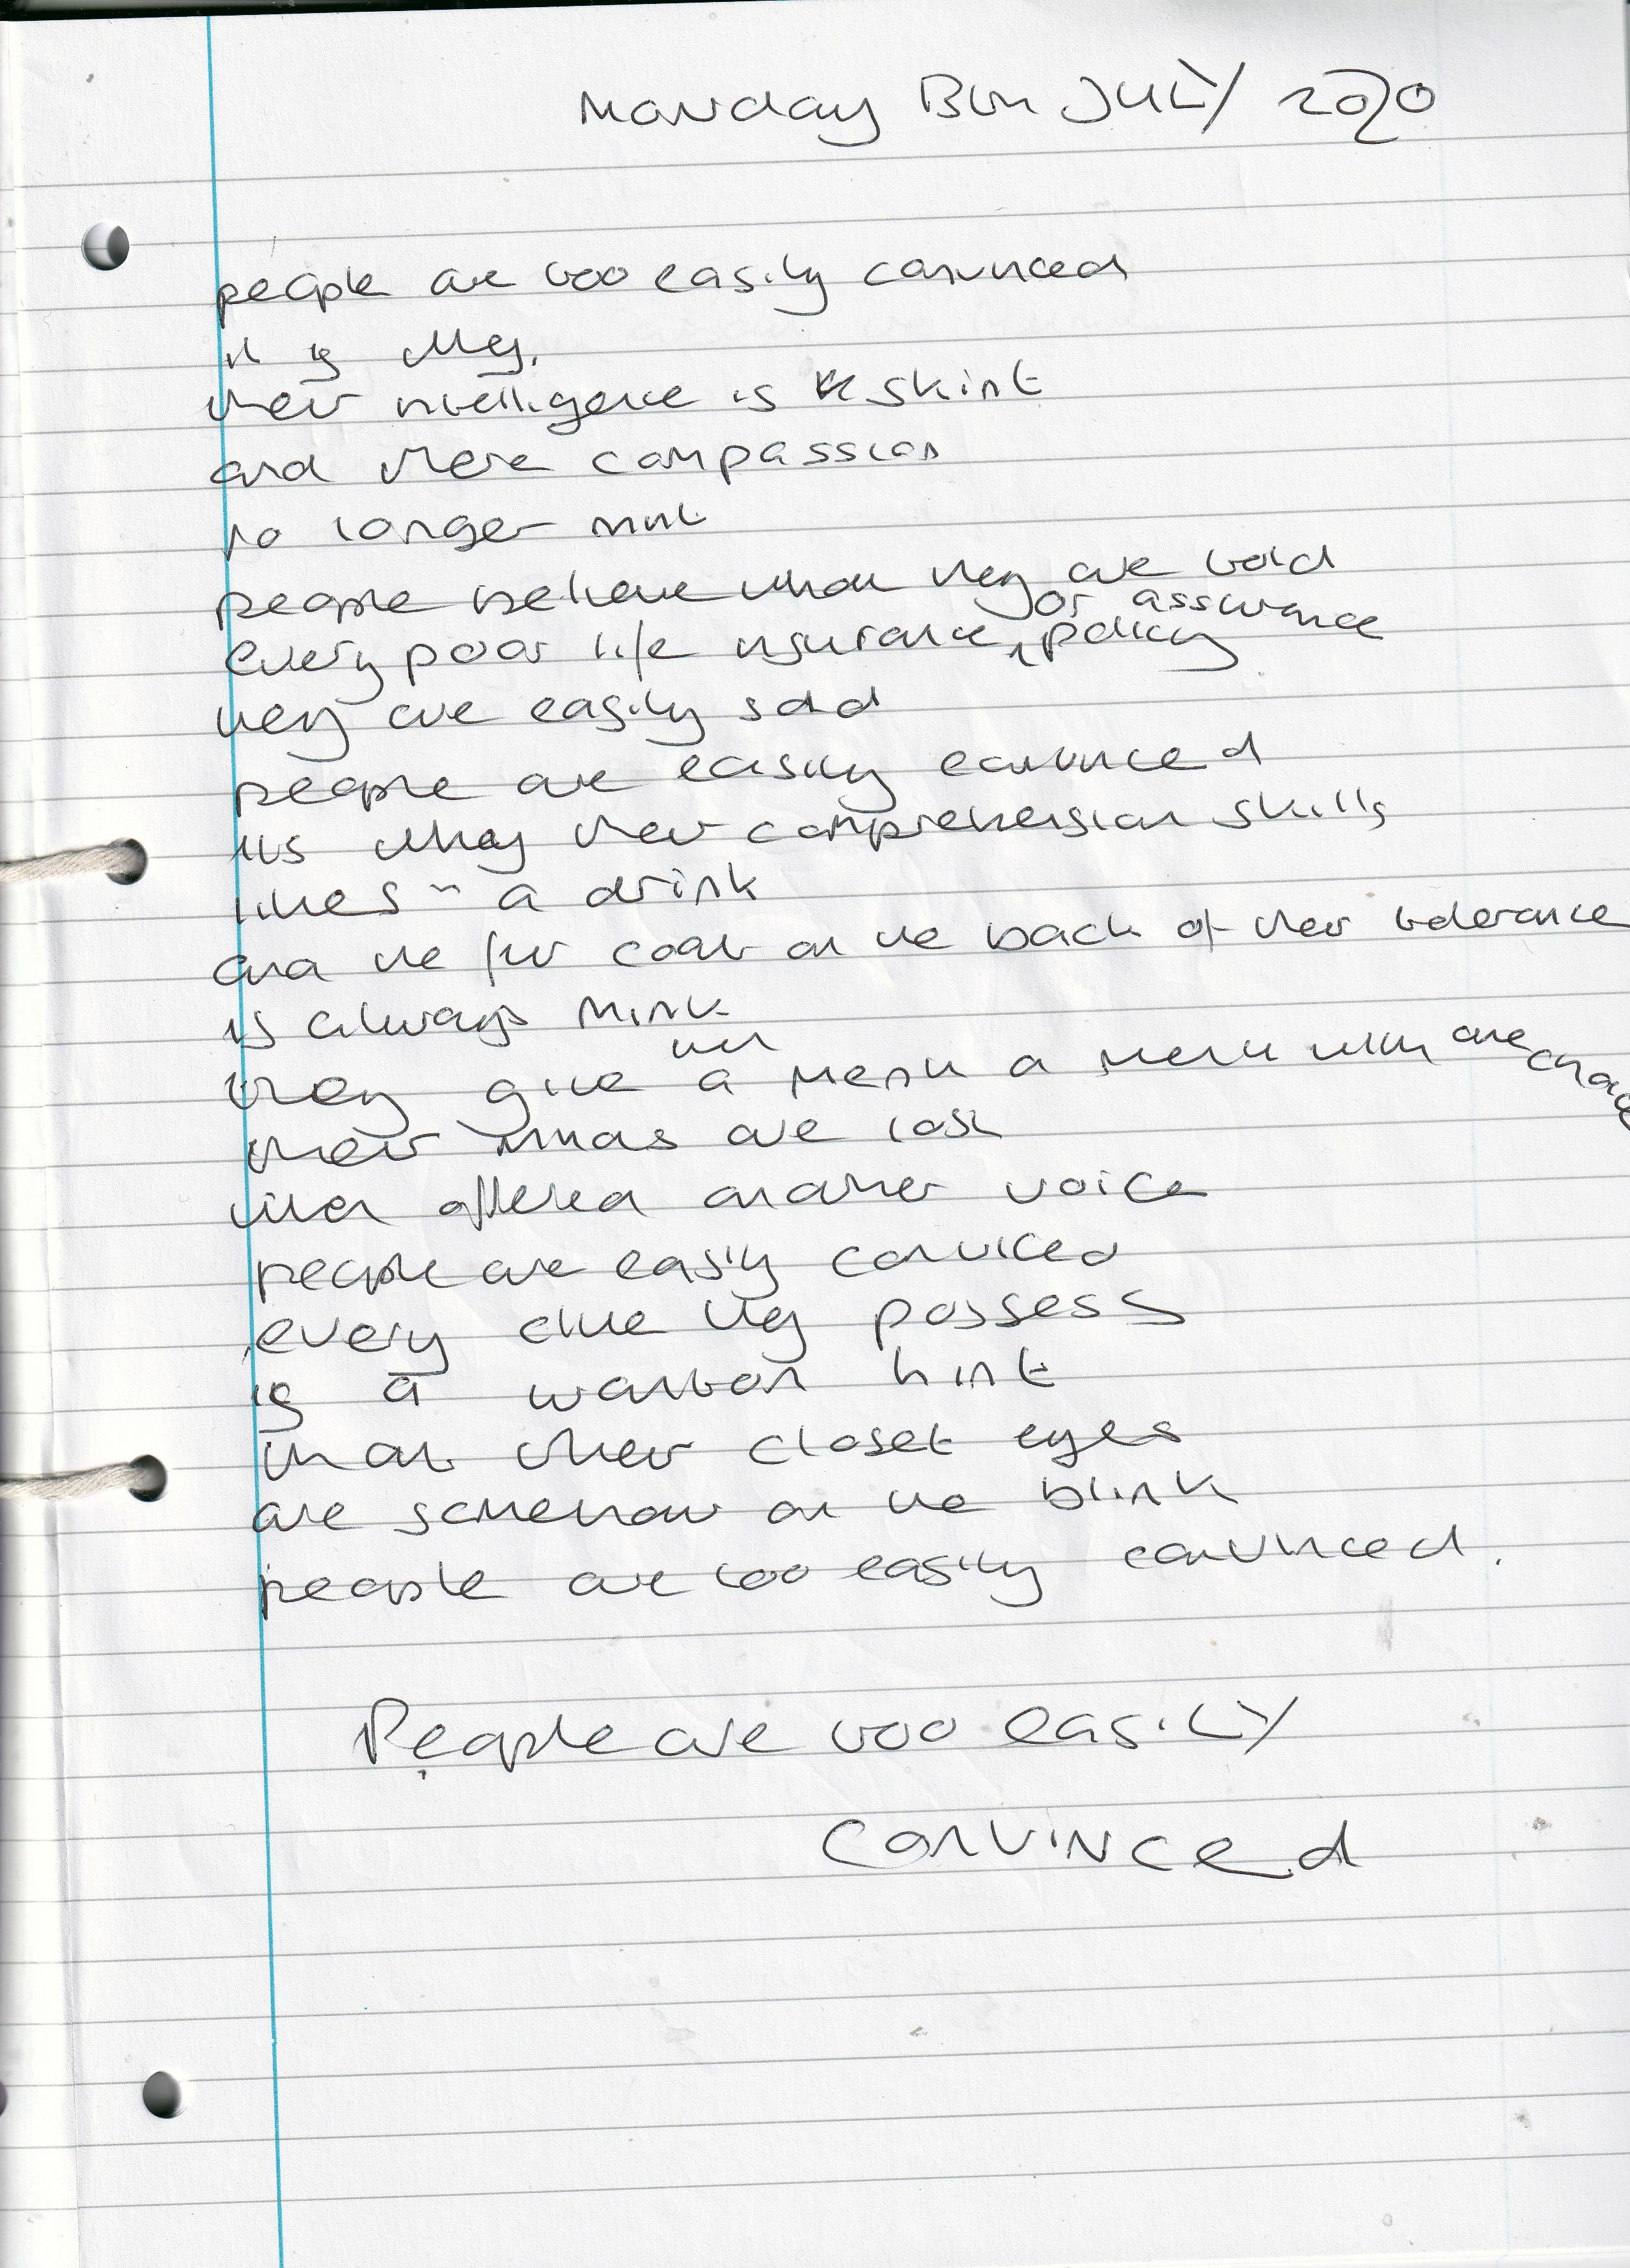 Monday 13th JULY 2020
people are too easily convinced
it is they.
their intelligence is skint
and there compassion
no longer mint
people believe what they are told
or assurance
every poor life insurance policy
they are easily sold
people are easily convinced
its they their comprehension skills
likes a drink
and the fur coat on the back of their tolerance
is always mink
they give a menu a menu with one choice
their minds are lost
when offered another voice
people are easily conviced
every clue they possess
is a wanton hint
that their closet eyes
are somehow on the blink
people are too easily convinced.
People are too easiLY
convinced